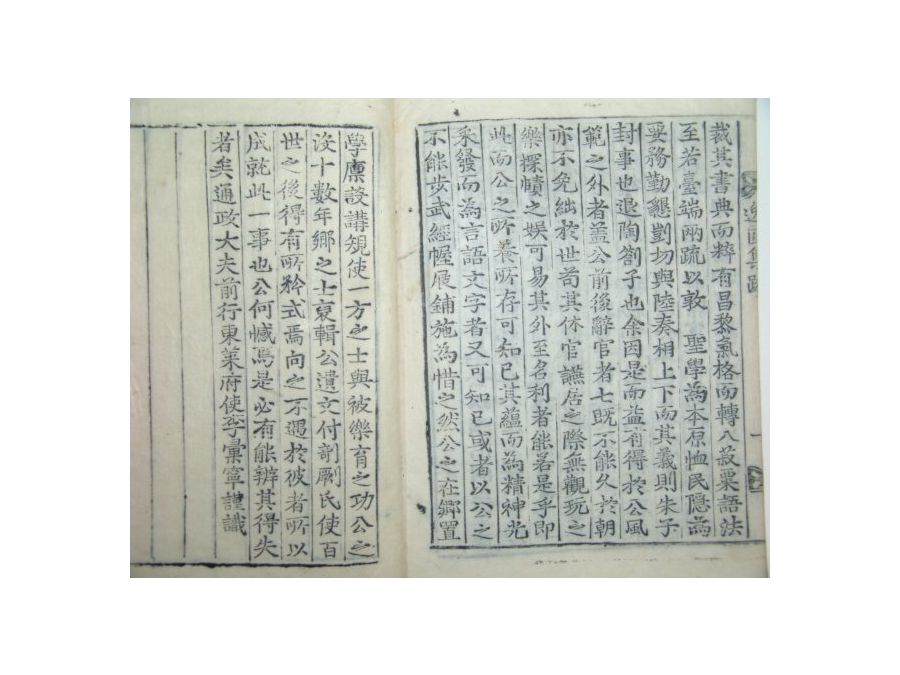 裁其書典而粹有昌黎氣格而轉入菽粟語法
至若臺端兩疏以敦 聖學為本原恤民隱為
要務勤懇剴切與陸奏相上下而其義則朱子
封事也退陶劄子也余因是而益有得於公風
範之外者盖公前後辭官者七既不能久於朝
亦不免絀於世苟其休官讌居之際無觀玩之
樂探賾之娛可易其外至名利者能若是乎即
此而公之所養所存可知已其蘊而為精神光
采發而為言語文字者又可知已或者以公之
不能步武經幄展鋪施為惜之然公之在鄉置
學廩設講規使一方之士與被樂育之功公之
沒十數年鄉之士裒輯公遺文付剞劂氏使百
世之後得有所矜式焉向之不遇於彼者所以
成就此一事也公何憾焉是必有能辨其得失
者矣通政大夫前行東萊府使李彙寧謹識
集跋
一